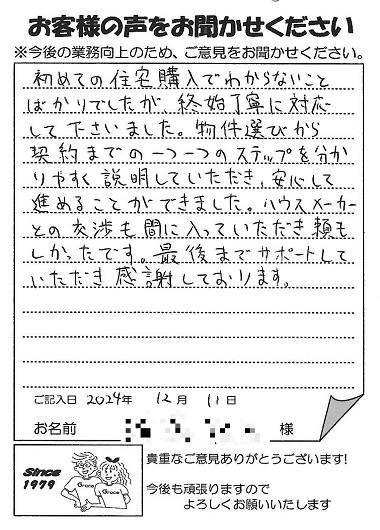 お客様の声をお聞かせください
※今後の業務向上のため、ご意見をお聞かせください。
初めての住宅購入でわからないこと
ばかりでしたが、終始丁寧に対応
して下さいました。物件選びから
契約までの一つ一つのステップを分か
りやすく説明していただき、安心して
進めることができました。ハウスメーカー
との交渉も間に入っていただき頼も
しかったです。最後までサポートして
いただき感謝しております。
ご記入日 2024年 12月 11日
お名前 様
Since
1979
Grace
Grace
貴重なご意見ありがとうございます!
今後も頑張りますので
よろしくお願いいたします